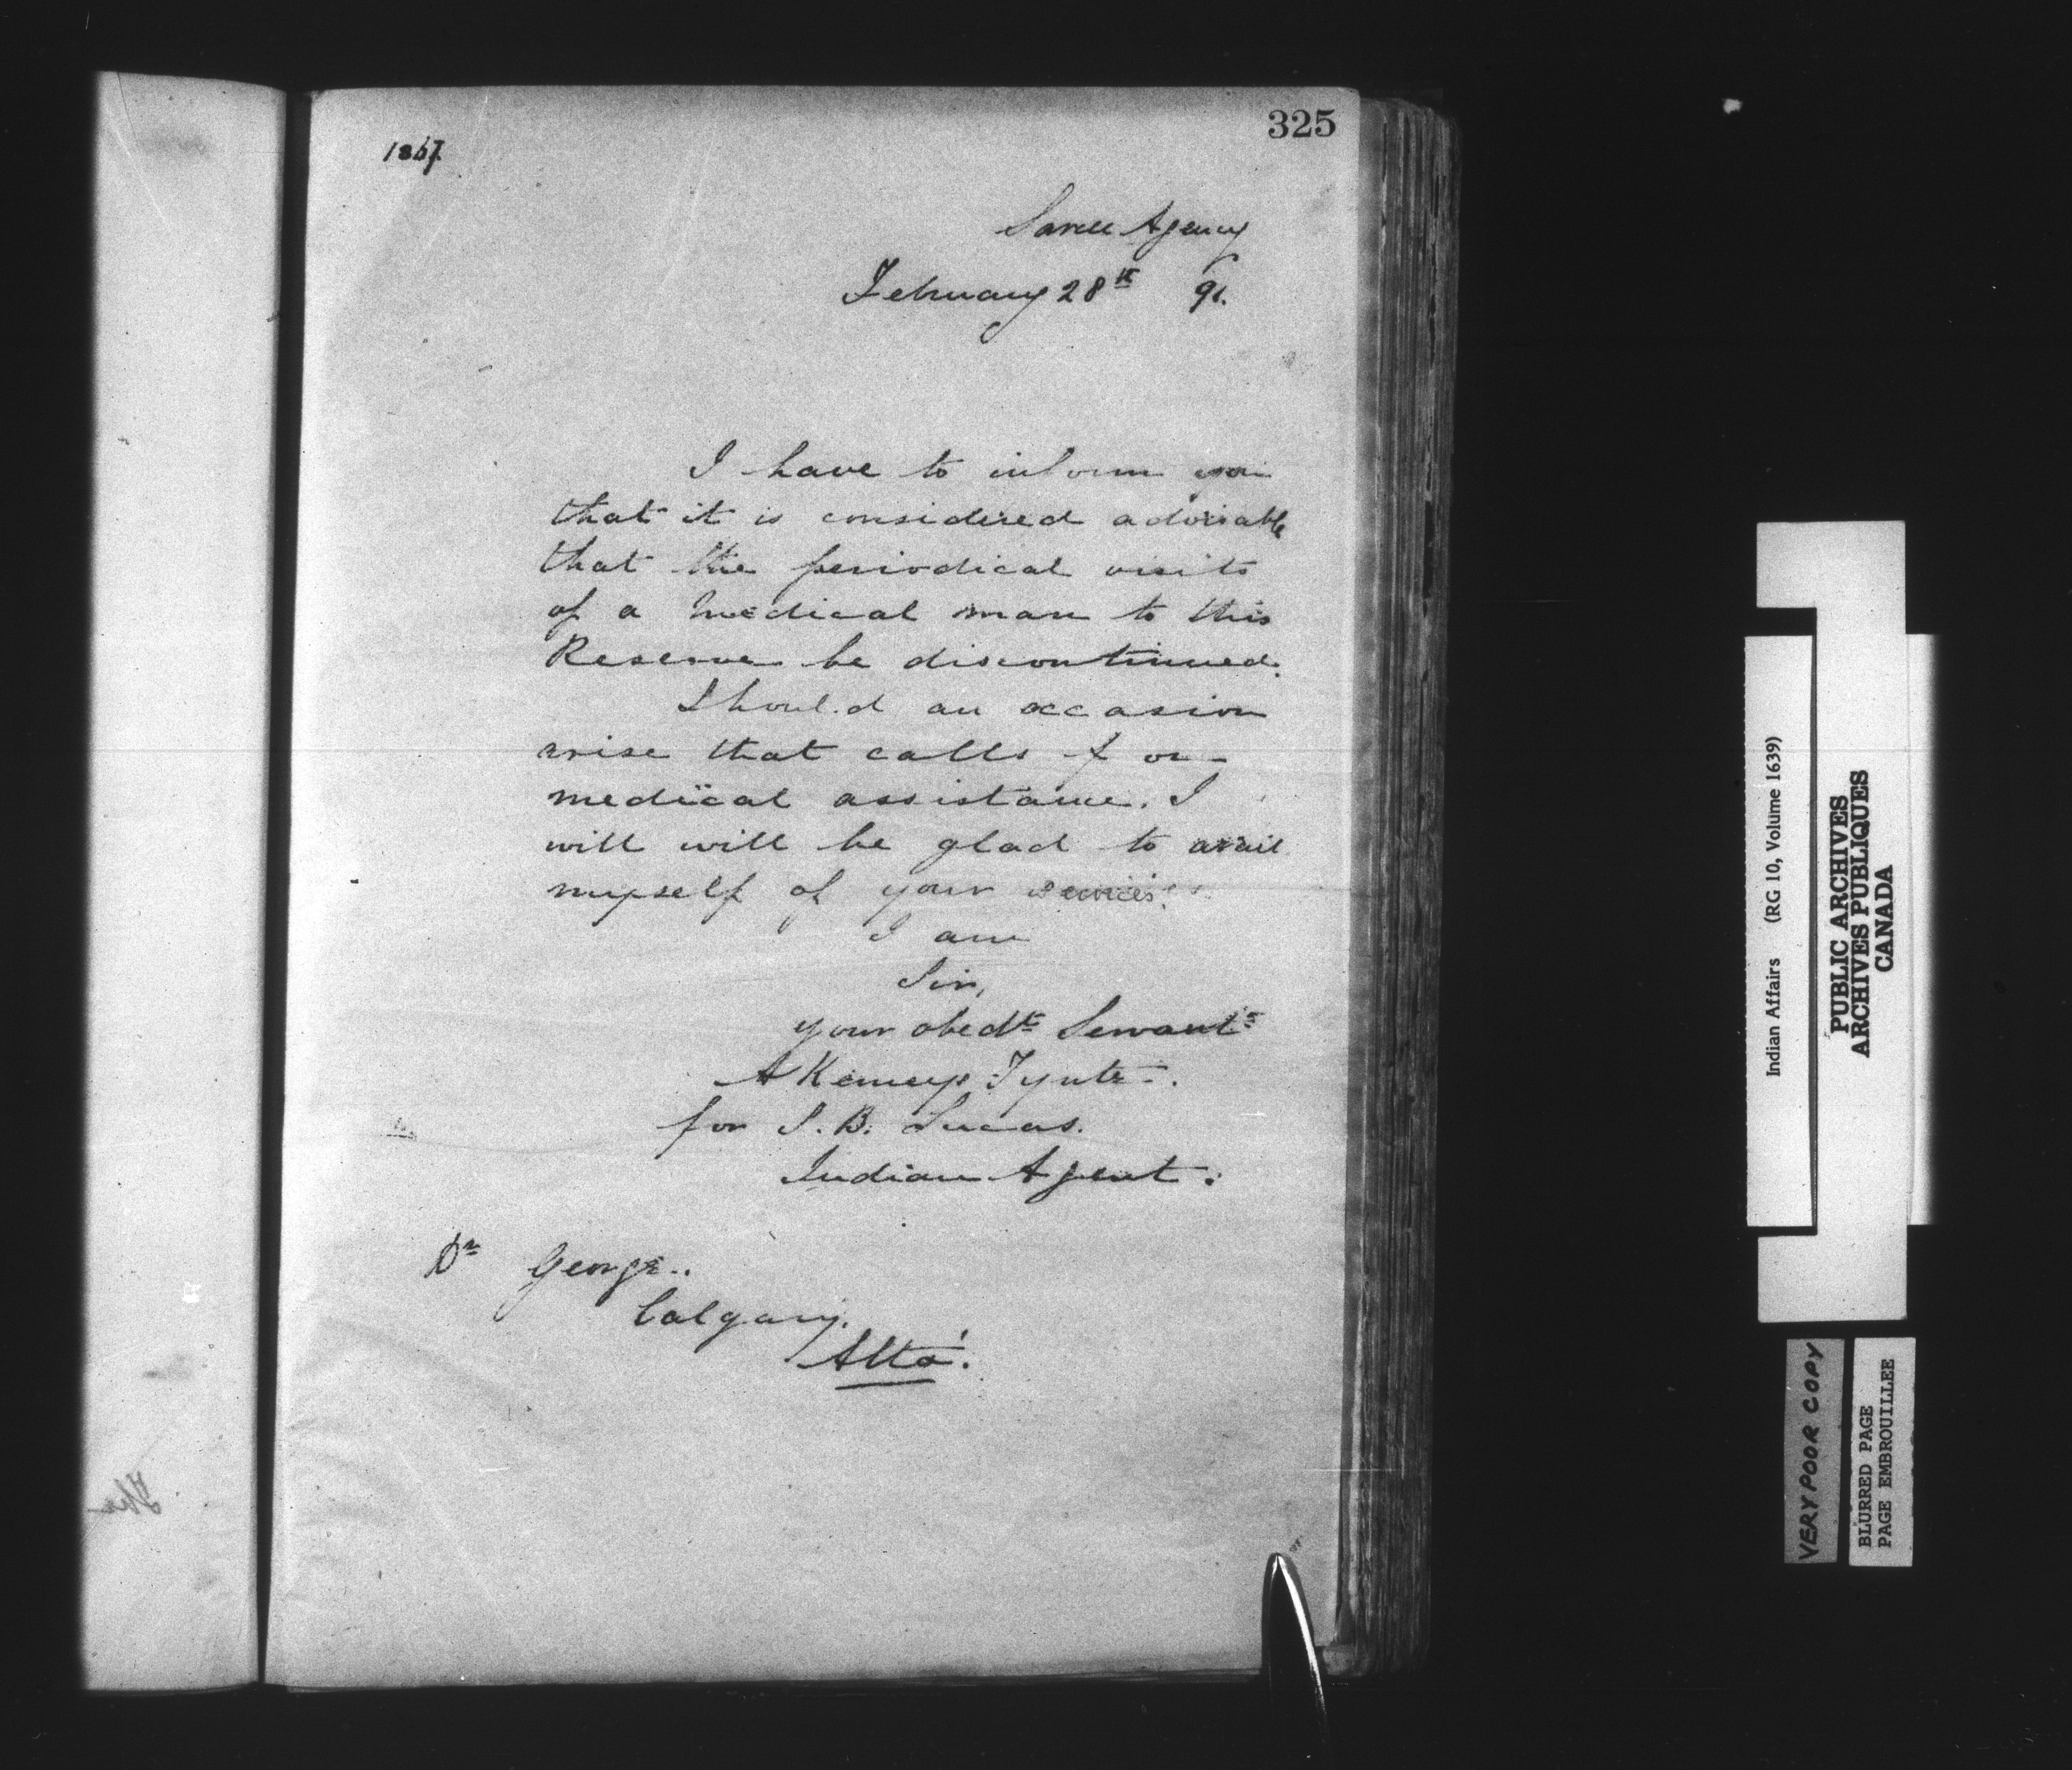 325
1867.
Sarcee Agency
February 28th 91.
I have to inform you
that it is considered advisable
that the periodical visits
of a medical man to this
Reserve be discontinued.
Should an occasion
arise that calls for
medical assistance. I
will will be glad to avail
myself of your services.
I am
Sir,
your obedt Servant
A Kemeys Tynte.
for S. B. Lucas.
Indian Agent.
Dr George.
Calgary.
Alta.
Indian Affairs (RG 10, Volume 1639)
PUBLIC ARCHIVES
ARCHIVES PUBLIQUES
CANADA
VERY POOR COPY
BLURRED PAGE
PAGE EMBROUILLEE